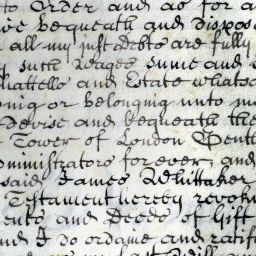 to Order and as for a
bequeath and dispose
all my just debts are fully
such Wages summe and s
Chattells and Estate whatso
ing or belonging unto m
Devise and bequeath the
Tower of London Gentl
dministrators for ever and
said James Whittaker
Testament hereby revok
ents and Deeds of Gift
nd I do ordaine and ratif
my last Will and